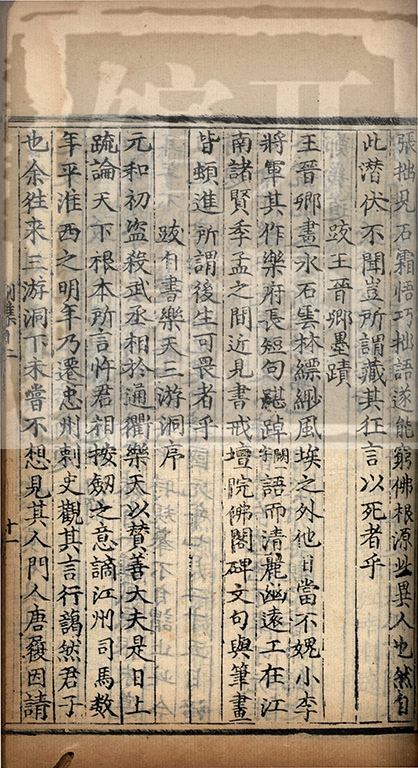 張拙見石霜悟巧拙語遂能窮佛根源此異人也然自
此潜伏不聞豈所謂藏其狂言以死者乎
跋王晉卿墨蹟
王晉卿畫水石雲林縹緲風埃之外他日當不媿小李
將軍其作樂府長短句踸踔口語而清麗幽遠工在江
南諸賢季孟之間近見書戒壇院佛閣碑文句與筆畫
皆頓進所謂後生可畏者乎
跋自書樂天三游洞序
元和初盜殺武丞相於通衢樂天以贊善大夫是日上
疏論天下根本所言忤君相按劒之意謫江州司馬數
年平淮西之明年乃遷忠州刺史觀其言行藹然君子
也余往來三游洞下未嘗不想見其人門人唐履因請
別集
十二